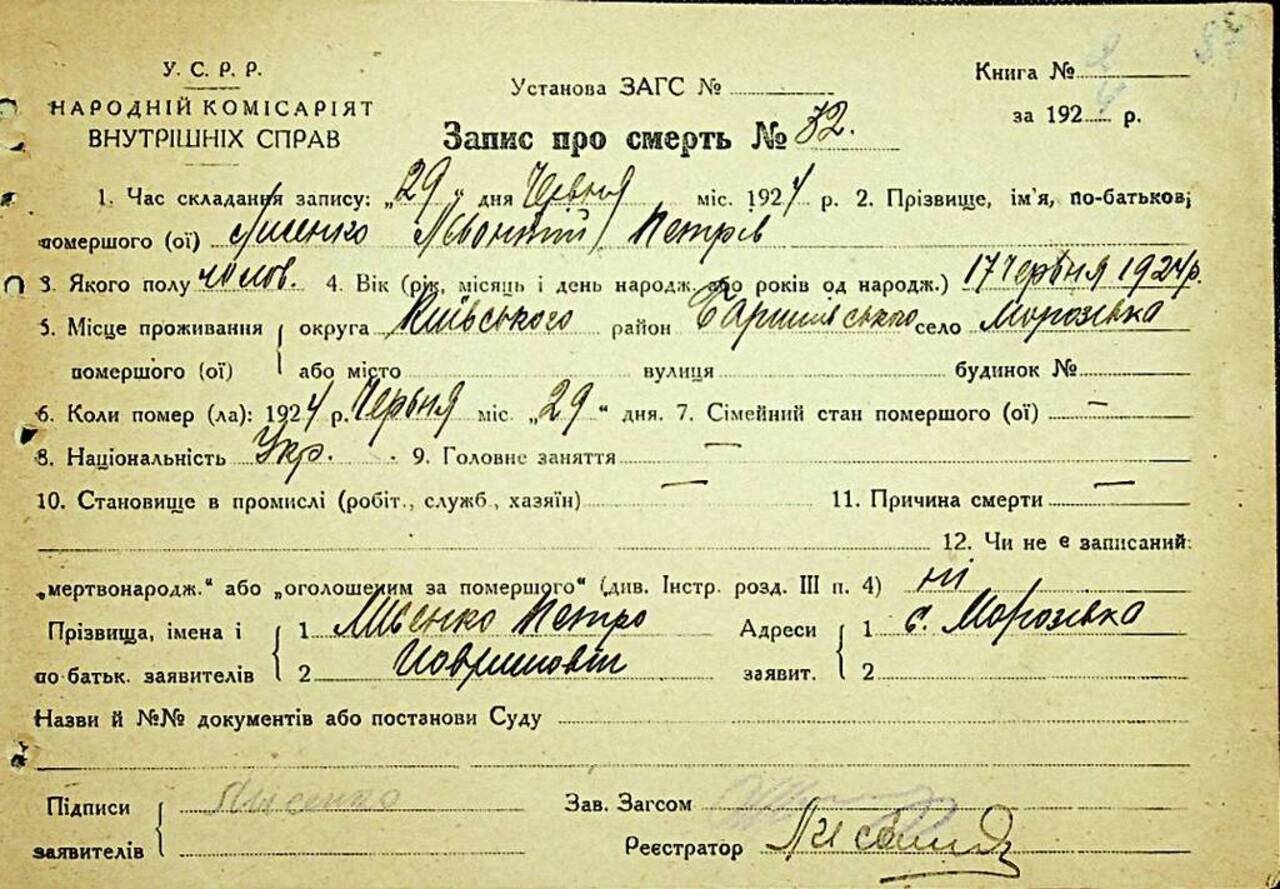 У. С. Р. Р.
НАРОДНІЙ КОМІСАРІЯТ
ВНУТРІШНІХ СПРАВ
Установа ЗАГС №
Книга №
за 192 р.
Запис про смерть № 32.
1. Час складання запису: „29“ дня Червня міс. 1924 р. 2. Прізвище, ім'я, по-батькові
помершого (ої) Лисенко Левонтій Петрів
3. Якого полу чолов. 4. Вік (рік, місяць і день народж. або років од народж.) 17 Червня 1924 р.
5. Місце проживання помершого (ої) округа Київського район село Морозівка
або місто вулиця будинок №
6. Коли помер (ла): 1924 р. Червня міс. „29“ дня. 7. Сімейний стан помершого (ої) —
8. Національність Укр. 9. Головне заняття —
10. Становище в промислі (робіт., служб., хазяїн) — 11. Причина смерти —
12. Чи не є записаний:
„мертвонародж.“ або „оголошеним за помершого“ (див. Інстр. розд. III п. 4) ні
Прізвища, імена і по батьк. заявителів 1 Лисенко Петро
2
Адреси заявит. 1 с. Морозівка
2
Назви й №№ документів або постанови Суду
Підписи заявителів Лисенко
Зав. Загсом
Реєстратор